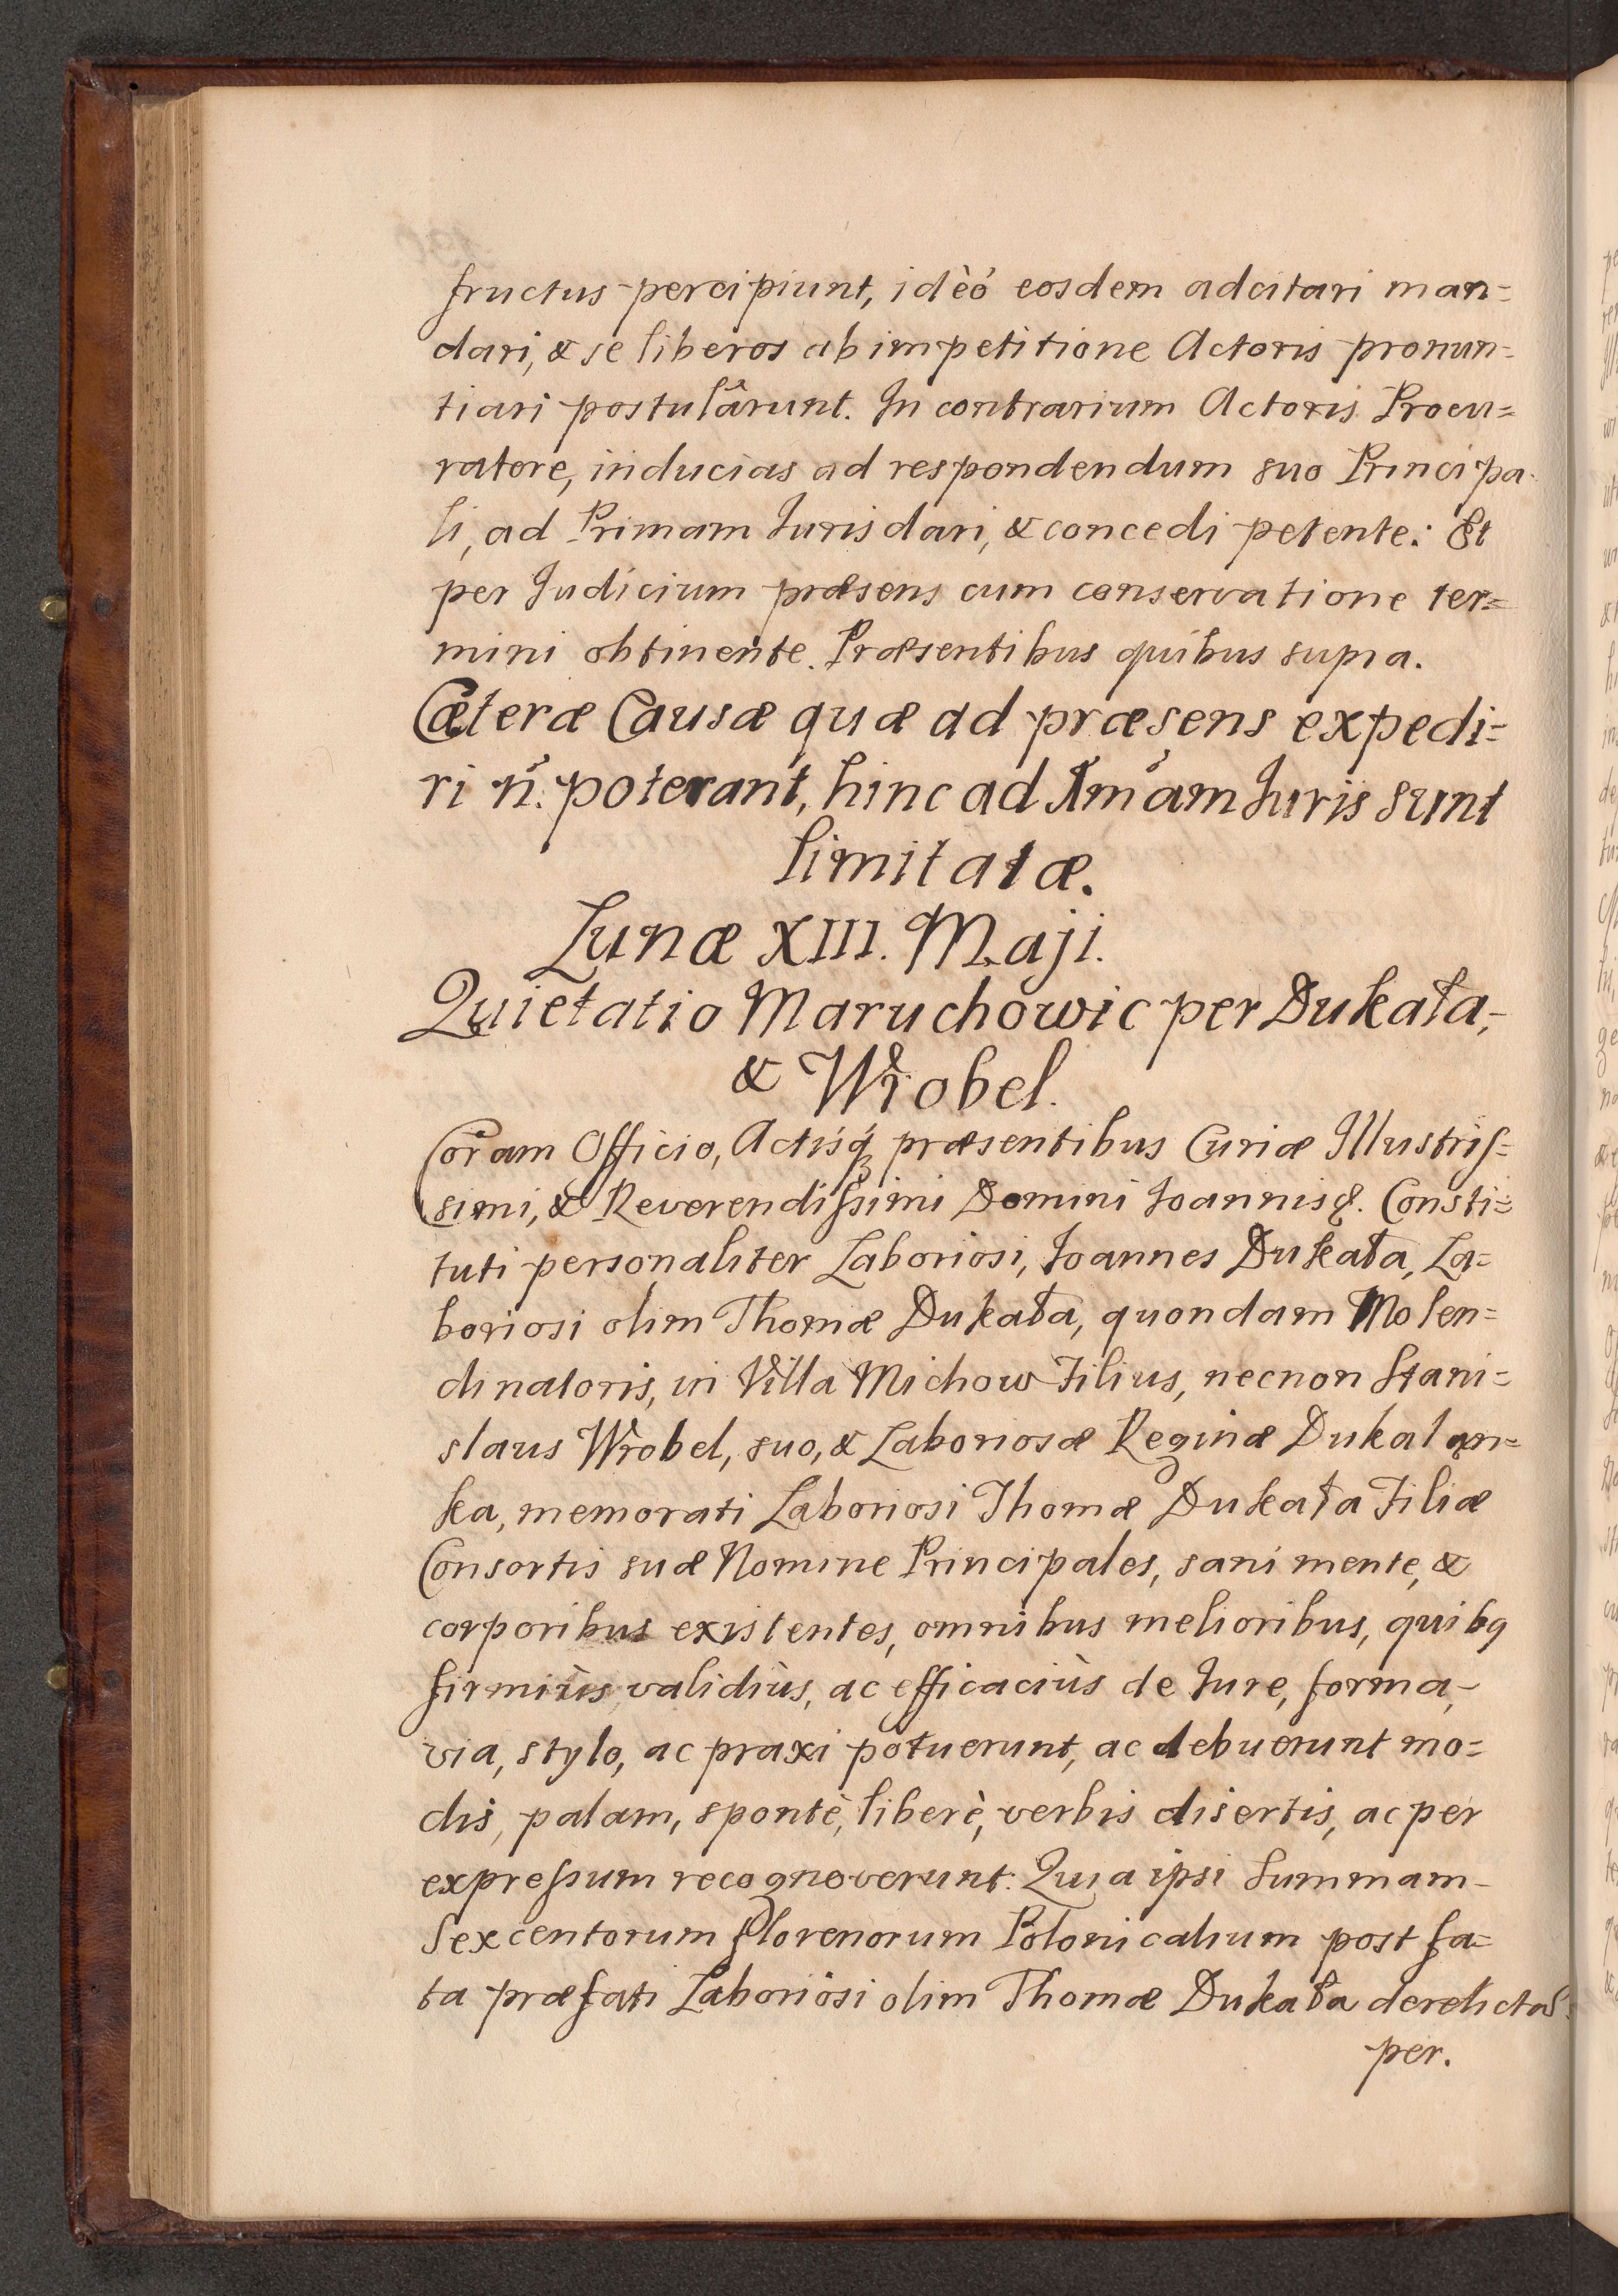 fructus percipiunt, idèó eosdem adcitari man=
dari, & se liberos ab impetitione Actoris pronun=
tiari postulârunt. In contrarium Actoris Procu=
ratore, inducias ad respondendum suo Principa-
li, ad Primam Iuris dari, & concedi petente: Et
per Iudicium præsens cum conservatione ter=
mini obtinente. Præsentibus quibus supra.
Cæteræ Causæ quæ ad præsens expedi=
ri ñ. poterant, hinc ad Imam Iuris sunt
limitatæ.
Lunæ XIII. Maji.
Quietatio Maruchowic per Dukała,
& Wrobel.
Coram Officio, Actisq́ præsentibus Curiæ Illustriſ=
simi, & Reverendiſsimi Domini Ioannis &. Consti=
tuti personaliter Laboriosi, Ioannes Dukała, La=
boriosi olim Thomæ Dukała, quondam Molen=
dinatoris, in Villa Michow Filius, necnon Stani=
slaus Wrobel, suo, & Laboriosæ Reginæ Dukałąn=
ka, memorati Laboriosi Thomæ Dukała Filiæ
Consortis suæ Nomine Principales, sani mente, &
corporibus existentes, omnibus melioribus, quibq
firmiùs validiùs, ac efficaciùs de Iure, forma,
via, stylo, ac praxi potuerunt, ac debuerunt mo=
dis, palam, spontè, liberè, verbis disertis, ac per
expreſsum recognoverunt: Quia ipsi Summam
Sexcentorum Florenorum Polonicalium post fa=
ta præfati Laboriosi olim Thomæ Dukała derelictas
per.